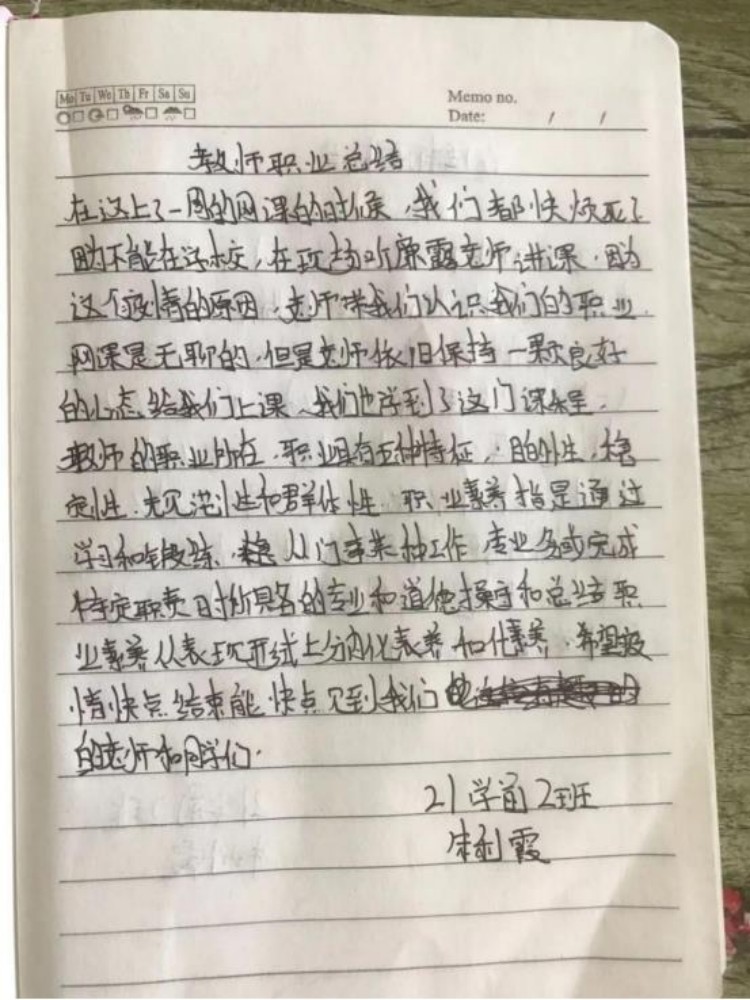 Mo Tu We Th Fr Sa Su
Memo no.
Date: / /
教师职业总结
在这上了一周的网课的时候,我们都快烦死了
因为不能在学校,在现场听廖露老师讲课.因为
这个疫情的原因,老师带我们认识我们的职业.
网课是无聊的,但是老师依旧保持一颗良好
的心态给我们上课、我们也学到了这门课程.
教师的职业所在,职业具有五种特征,目的性,稳
定性.规范性和群体性 职业素养指是通过
学习和锻练,从门事某种工作 专业务或完成
特定职责时所具备的专业和道德操守和总结职
业素养从表现形式上分内化素养和化素养.希望疫
情快点结束能快点见到我们
的老师和同学们.
21学前2班
霞